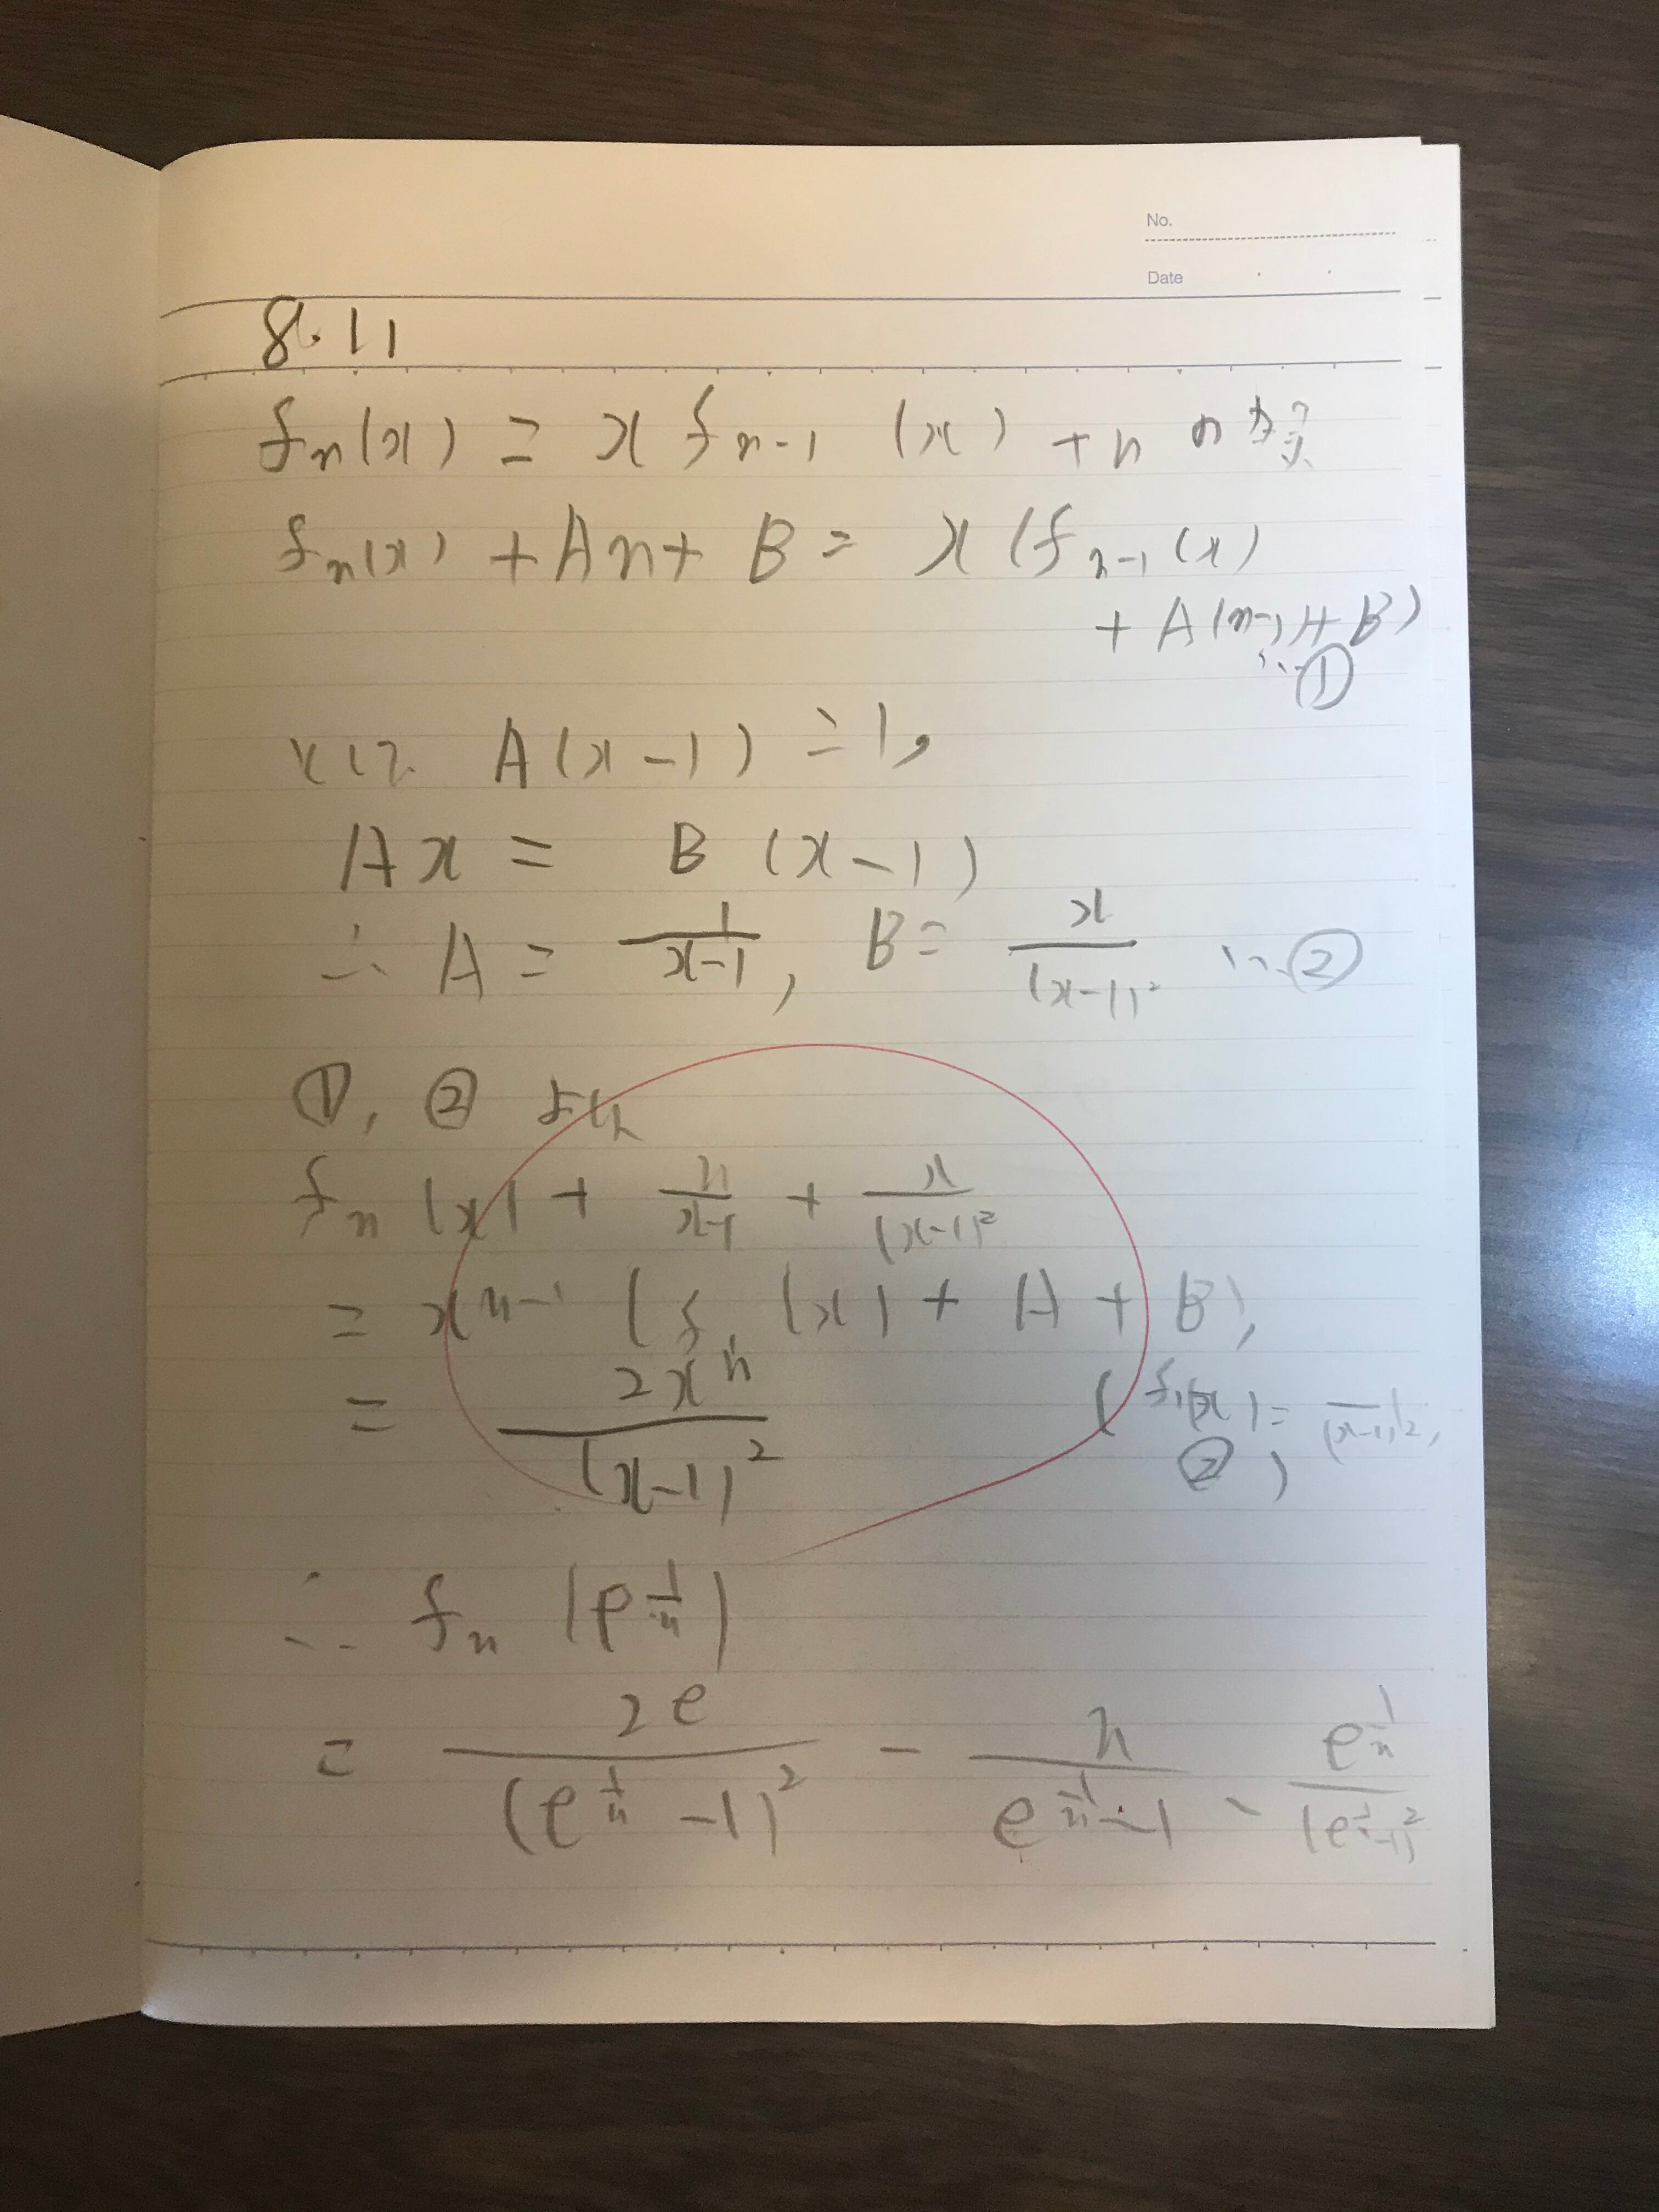 No.
Date
8.11
fₙ(x) = x fₙ₋₁ (x) + n の時
fₙ(x) + An + B = x (fₙ₋₁(x)
+ A(n-1) + B)
… ①
として A(x-1) = 1,
Ax = B (x-1)
∴ A = 1/(x-1), B = x/(x-1)² … ②
①, ② より
fₙ (x) + n/(x-1) + x/(x-1)²
= xⁿ⁻¹ (f₁ (x) + A + B),
= 2xⁿ/(x-1)² ( f₁(x) = 1/(x-1)²,
② )
∴ fₙ (e^(1/n))
= 2e/(e^(1/n) -1)² - n/(e^(1/n) -1) - e^(1/n)/(e^(1/n) -1)²